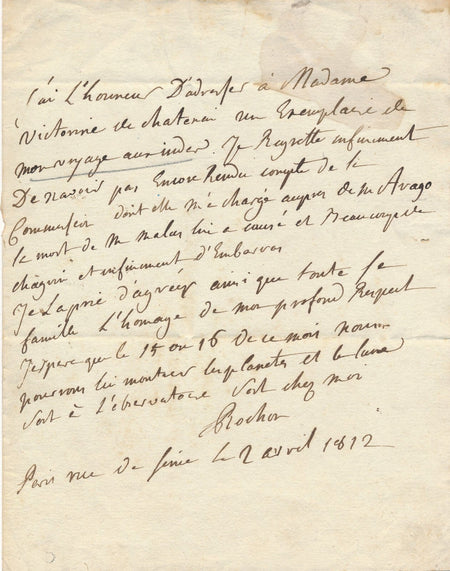 j'ai L'honneur D'adresser à Madame
Victorine de chatenai un Exemplaire de
mon voyage aux indes. Je Regrette infiniment
De n'avoir pas Encore Rendu compte de la
Commission dont elle m'a chargé aupres de Mr Arago
la mort de Mr malus lui a causé et Beaucoup de
chagrin et infiniment d'Embarras
Je La prie d'agréer ainsi que toute sa
famille L'homage de mon profond Respect
J'espere que le 15 ou 16 de ce mois nous
pourrons lui montrer les planetes et la lune
soit à L'observatoire soit chez moi
Rochon
Paris rue de seine le 2 avril 1812